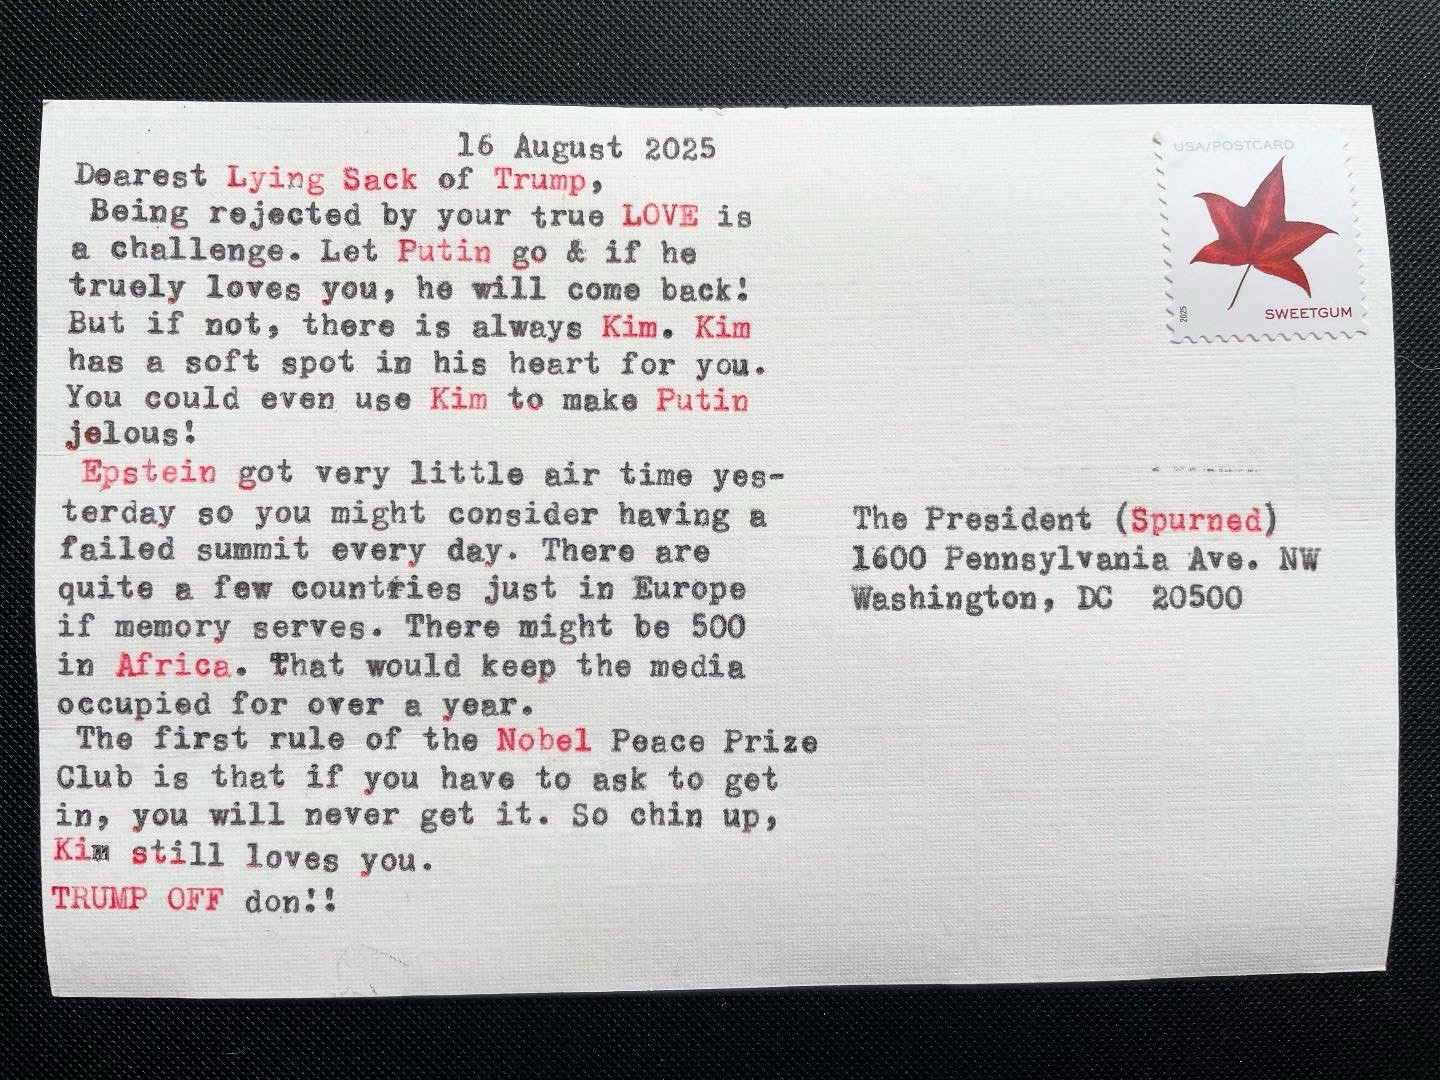 16 August 2025
Dearest Lying Sack of Trump,
Being rejected by your true LOVE is
a challenge. Let Putin go & if he
truely loves you, he will come back!
But if not, there is always Kim. Kim
has a soft spot in his heart for you.
You could even use Kim to make Putin
jelous!
Epstein got very little air time yes-
terday so you might consider having a
failed summit every day. There are
quite a few countries just in Europe
if memory serves. There might be 500
in Africa. That would keep the media
occupied for over a year.
The first rule of the Nobel Peace Prize
Club is that if you have to ask to get
in, you will never get it. So chin up,
Kim still loves you.
TRUMP OFF don!!
USA/POSTCARD
2025
SWEETGUM
The President (Spurned)
1600 Pennsylvania Ave. NW
Washington, DC 20500